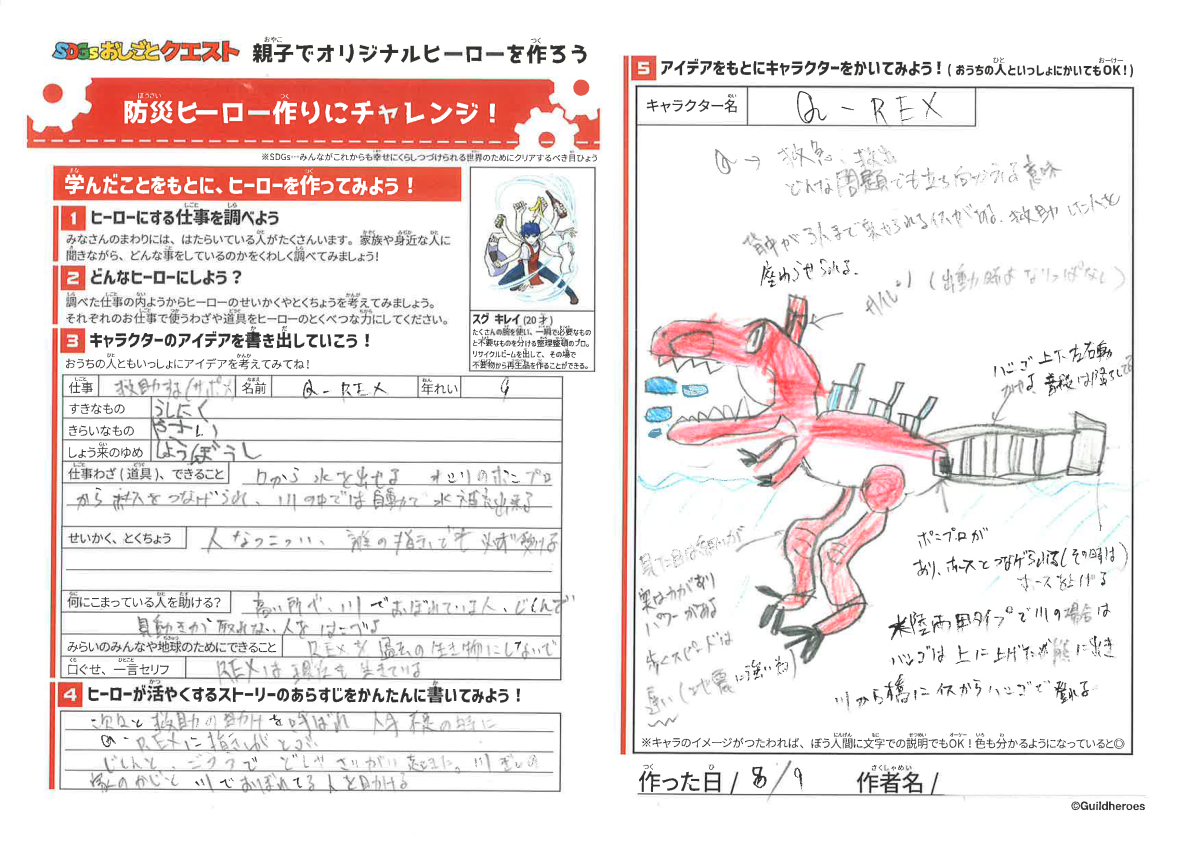 SDGsおしごとクエスト 親子でオリジナルヒーローを作ろう
防災ヒーロー作りにチャレンジ！
※SDGs…みんながこれからも幸せにくらしつづけられる世界のためにクリアするべき目ひょう
学んだことをもとに、ヒーローを作ってみよう！
1 ヒーローにする仕事を調べよう
みなさんのまわりには、はたらいている人がたくさんいます。家族や身近な人に
聞きながら、どんな事をしているのかをくわしく調べてみましょう！
2 どんなヒーローにしよう？
調べた仕事の内ようからヒーローのせいかくやとくちょうを考えてみましょう。
それぞれのお仕事で使うわざや道具をヒーローのとくべつな力にしてください。
スグ キレイ(20才)
たくさんの腕を使い、一瞬で必要なもの
と不要なものを分ける整理整頓のプロ。
リサイクルビームを出して、その場で
不要物から再生品を作ることができる。
3 キャラクターのアイデアを書き出していこう！
おうちの人ともいっしょにアイデアを考えてみてね！
仕事 救助 名前 Q-REX 年れい 9
すきなもの うしにく
きらいなもの やさい
しょう来のゆめ しょうぼうし
仕事わざ(道具)、できること 口から水を出せる
川の中では自動で水
せいかく、とくちょう 人なつこい、誰の指示でも必ず動ける
何にこまっている人を助ける？ 高い所や、川でおぼれている人、じしんで
身動きが取れない人をはこぶ
みらいのみんなや地球のためにできること REXを過去の生き物にしないで
口ぐせ、一言セリフ REXは現在も生きている
4 ヒーローが活やくするストーリーのあらすじをかんたんに書いてみよう！
次々と救助の助けを呼ばれ
Q-REXに指示がとぶ
じしんと、どしゃさいがいが起きた。川
家のかじと川でおぼれてる人を助ける
5 アイデアをもとにキャラクターをかいてみよう！(おうちの人といっしょにかいてもOK！)
キャラクター名 Q-REX
Q→ 救急、救助
どんな問題でも立ち向かう 意味
背中が3人まで乗せられるイスがある。救助した人を
座わらせられる。
サイレン (出動時は なりっぱなし)
ハシゴ 上下左右動
かせる 普段は
ポンプロが
あり、ホースとつなげられる(その時は)
ホースを上げる
見た目は細いが
実は力があり
パワーがある
歩くスピードは
速い(地震に強い為)
水陸両用タイプで川の場合は
ハシゴは上に上げ
川から橋にイスからハシゴで登れる
※キャラのイメージがつたわれば、ぼう人間に文字での説明でもOK！色も分かるようになっていると◎
作った日/ 8/9 作者名/
©Guildheroes